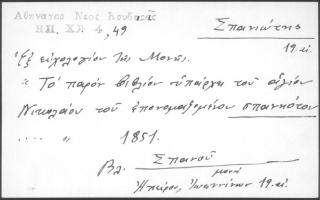 Ἀθηναγορ Νεος Κουβαρᾶς
ΗΠ. ΧΡ. 4, 49
Σπανιώτης
19. αἰ.
Ἐξ εὐχολογίου τῆς Μονῆς.
« Τό παρόν βιβλίον ὑπάρχει τοῦ ἁγίου
Νικολάου τοῦ ἐπονομαζομένου σπανιότου
.... » 1851.
Βλ. Σπανοῦ
μονή
Ἤπειρος, Ἰωαννίνων 19. αἰ.